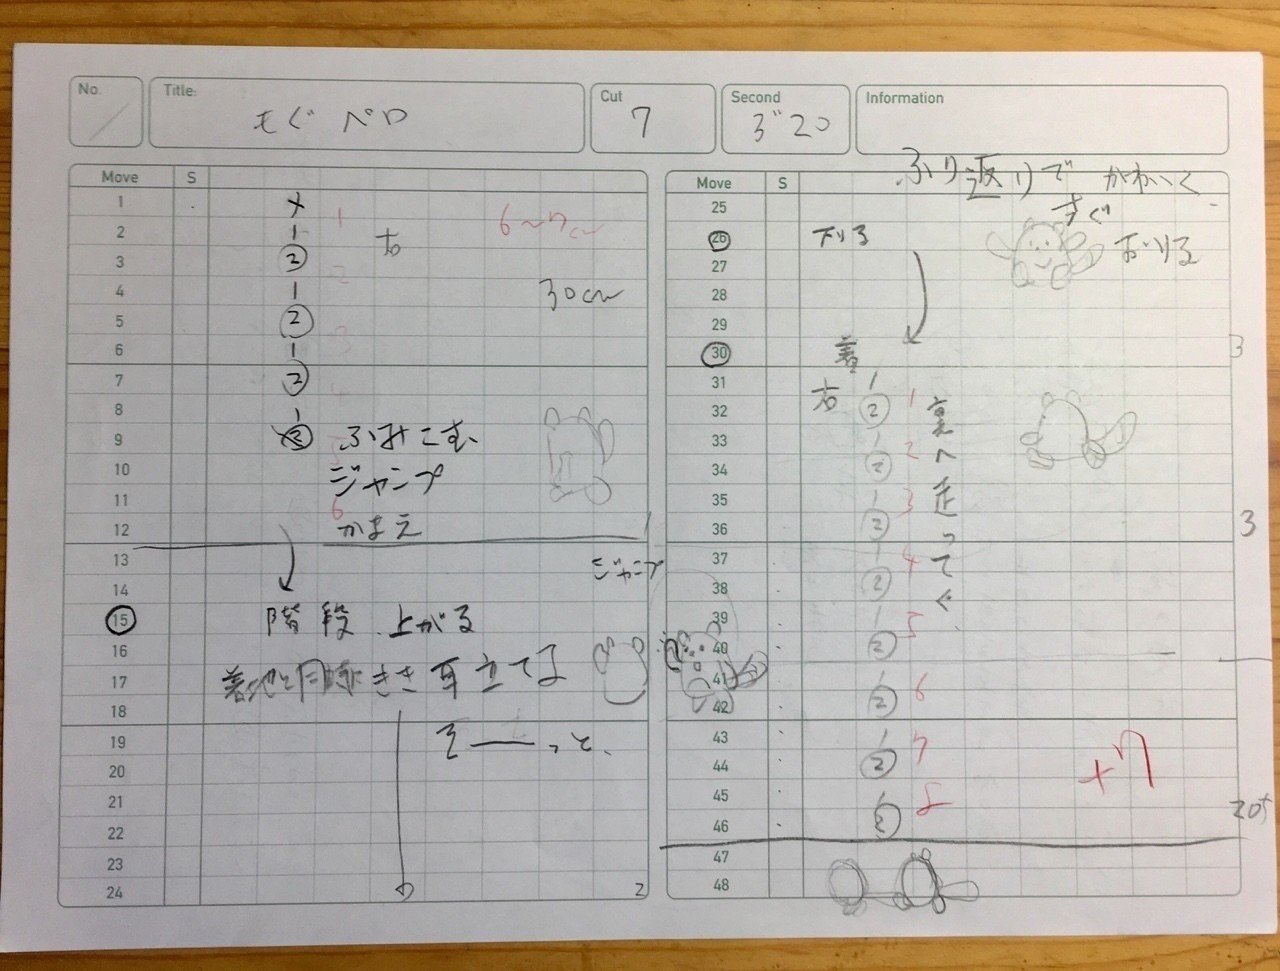 No.
Title:
もぐ ペロ
Cut
7
Second
3"20
Information
Move S
1
2
3
4
5
6
7
8
9
10
11
12
13
14
15
16
17
18
19
20
21
22
23
24
1
2
3
4
6
右
6〜7cm
30cm
ふみこむ
ジャンプ
かまえ
ジャンプ
階段 上がる
着地と同時にきき耳立てる
そ──っと、
2
Move S
25
26
27
28
29
30
31
32
33
34
35
36
37
38
39
40
41
42
43
44
45
46
47
48
ふり返りで かわいく
すぐ
おりる
下りる
着
右
裏へ走ってく
1
2
3
4
5
6
7
8
3
3
+7